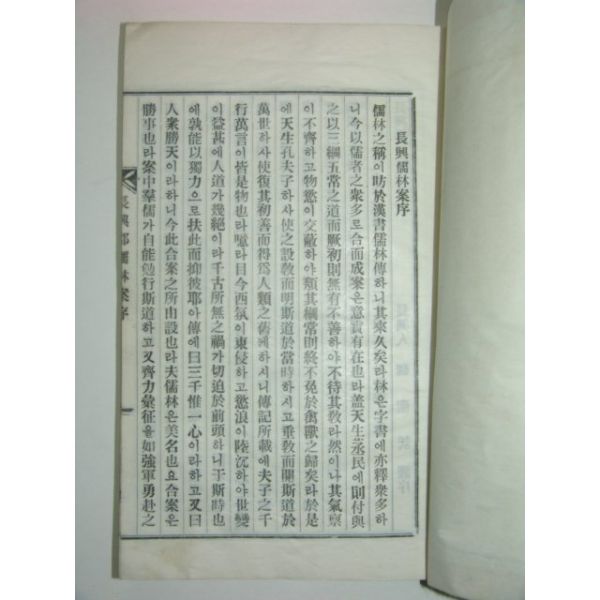 長興儒林案序
儒林之稱이昉於漢書儒林傳하니其來久矣라林은字書에亦釋衆多하
니今以儒者之衆多로合而成案은意實有在也라蓋天生烝民에則付與
之以三綱五常之道而厥初則無有不善하야不待其敎라然이나其氣稟
이不齊하고物慾이交蔽하야類其綱常則終不免於禽獸之歸矣라於是
에天生孔夫子하사使之設敎而明斯道於當時하시고垂敎而開斯道於
萬世하사使復其初善而得爲人類之舊케하시니傳記所載에夫子之千
行萬言이皆是物也라噫라目今西氛이東侵하고慾浪이陸沉하야世變
이益甚에人道가幾絕이라千古所無之禍가切迫於前頭하니于斯時也
에孰能以獨力으로扶此而抑彼耶아傳에曰三千惟一心이라하고又曰
人衆勝天이라하니今此合案之所由設也라夫儒林은美名也요合案은
勝事也라案中羣儒가自能勉行斯道하고又齊力彙征을如強軍勇赴之
長興郡儒林案序